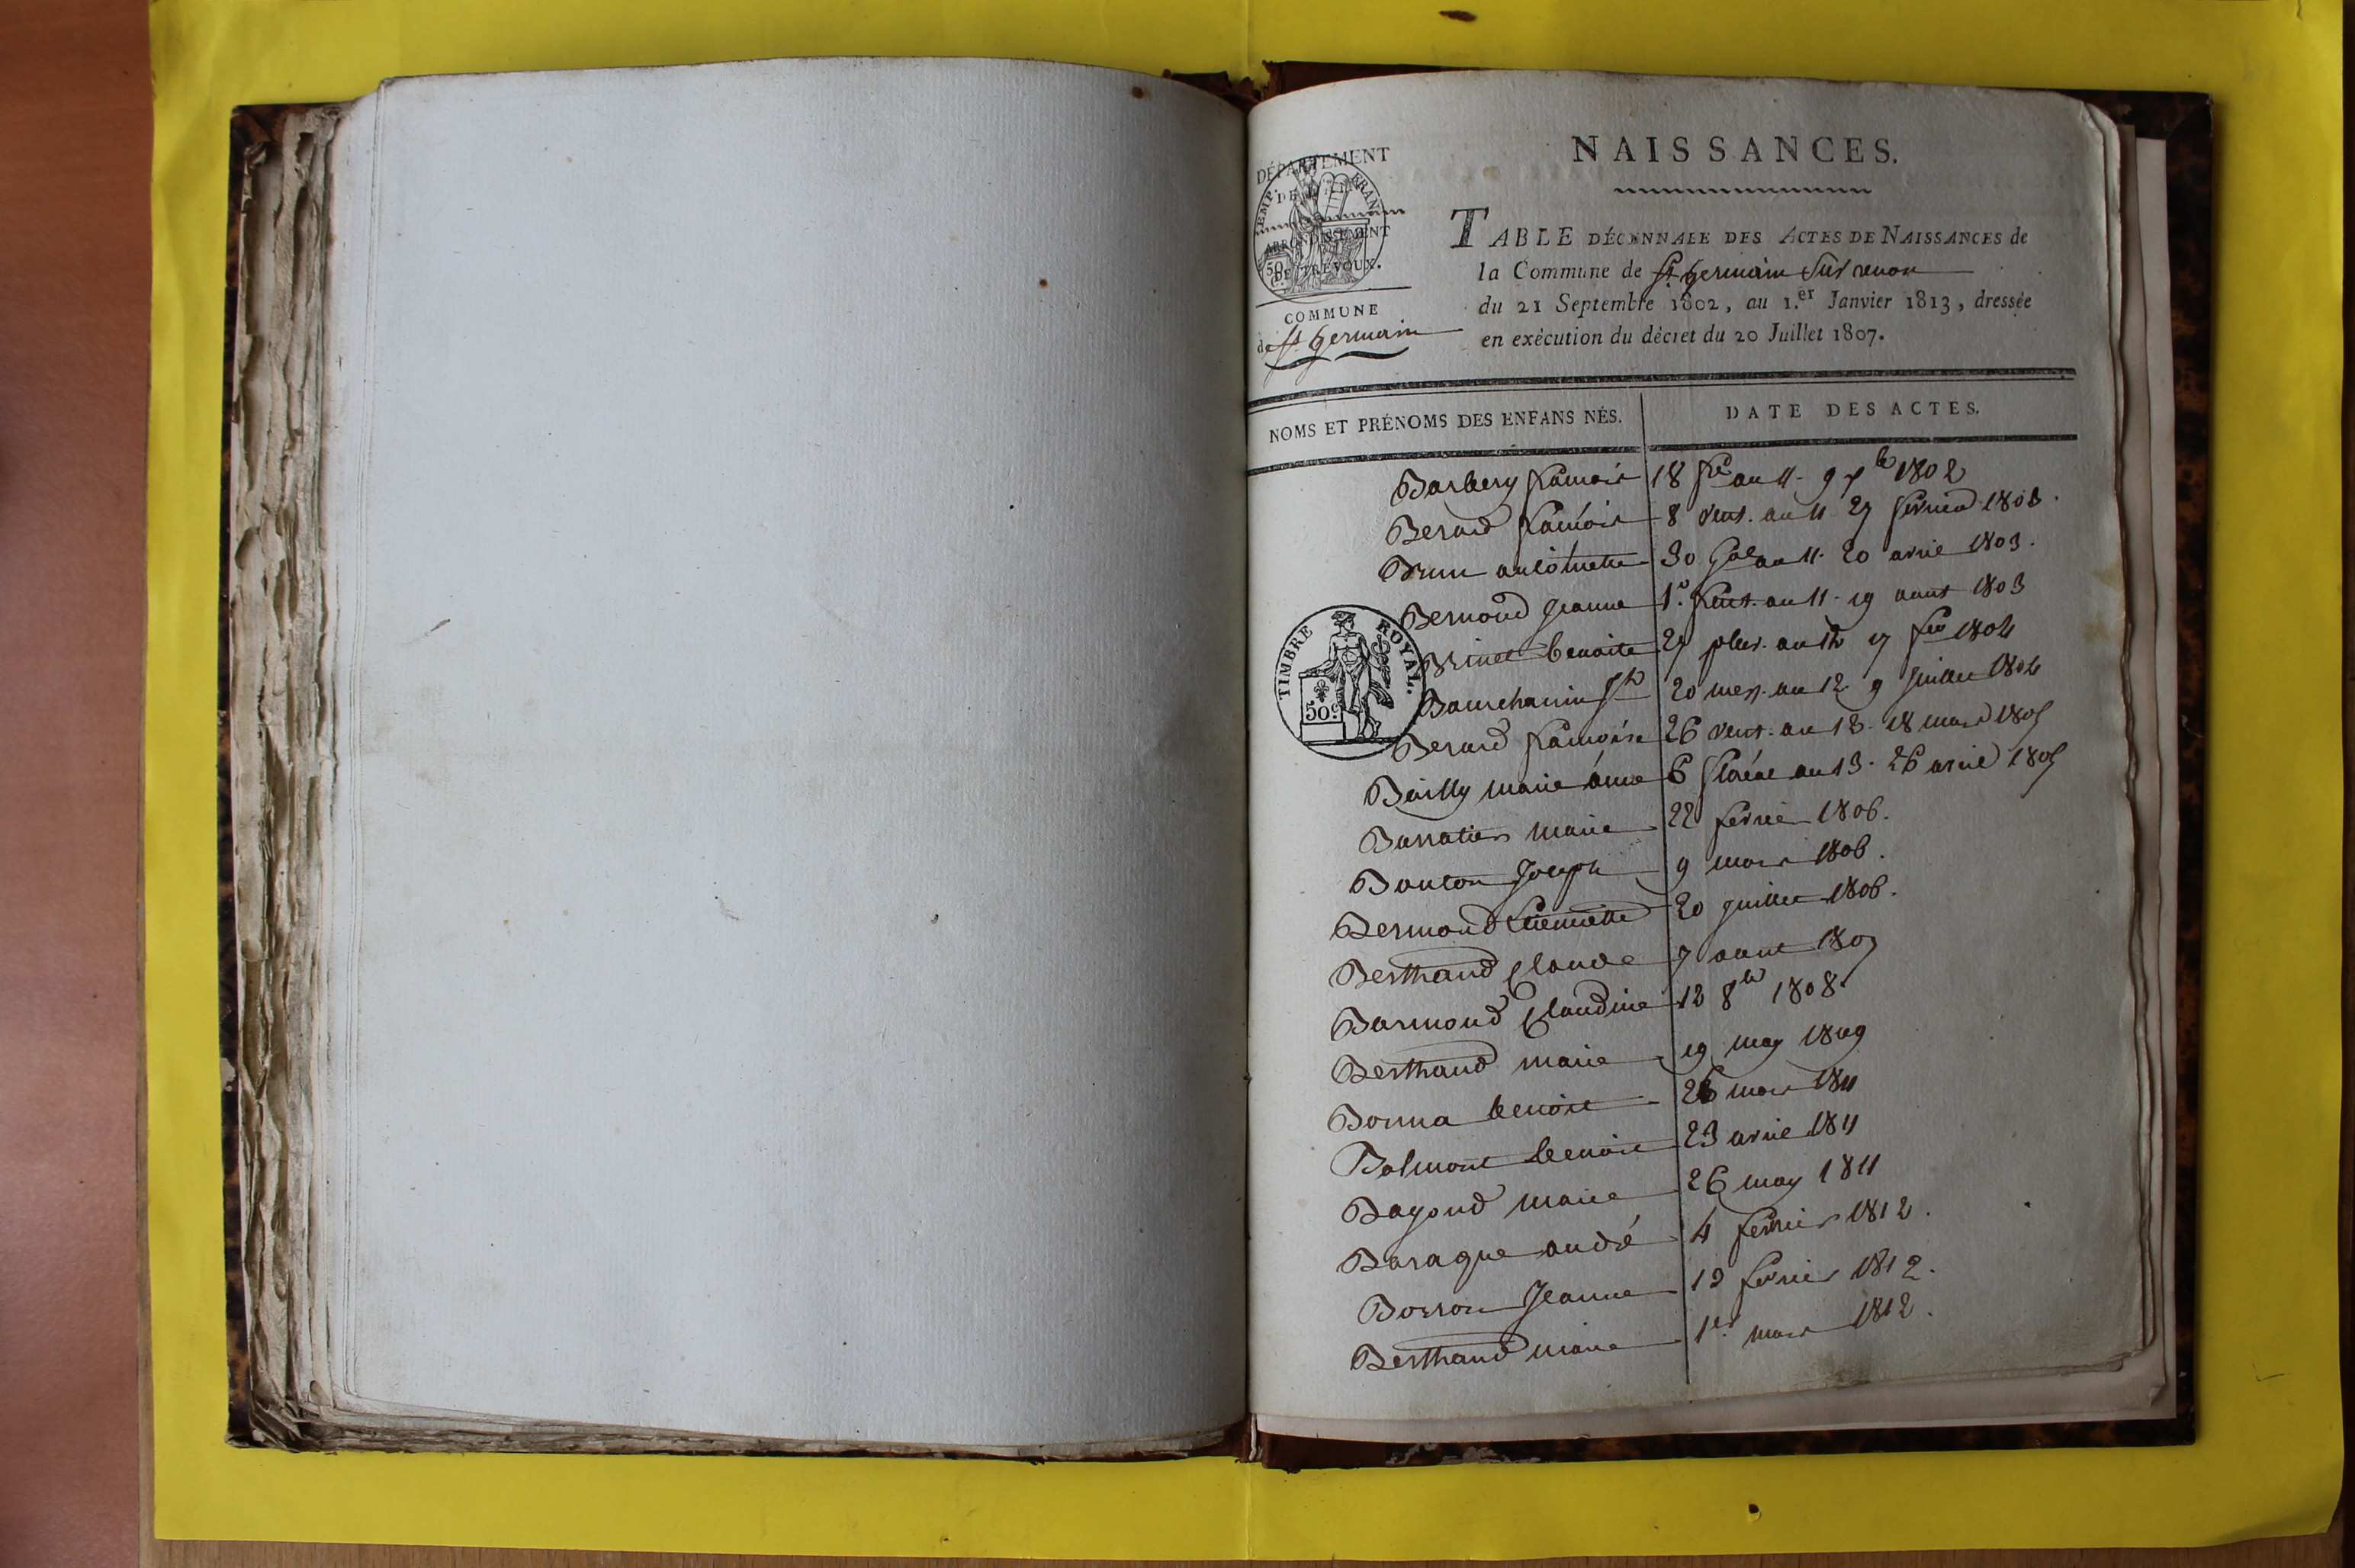 NAISSANCES.
DÉPARTEMENT
DE L'AIN
EMP. FRAN
ARRONDISSEMENT
DE TRÉVOUX.
50
C.
COMMUNE
de St germain
TABLE DÉCENNALE DES ACTES DE NAISSANCES de
la Commune de St germain sur renon
du 21 Septembre 1802, au 1.er Janvier 1813, dressée
en exécution du décret du 20 Juillet 1807.
NOMS ET PRÉNOMS DES ENFANS NÉS. DATE DES ACTES.
Barbery francois 18 fre an 11 - 9 7bre 1802
Berard francois 8 vent. an 11 27 fevrier 1803.
Brun antoinette 30 Gal an 11. 20 avril 1803.
Bermond Jeanne 1er fruct. an 11 - 19 aout 1803
benoite 27 pluv. an 12 17 fer 1804
TIMBRE ROYAL.
50c
20 mess. an 12 9 juillet 1804
Berard francoise 26 vent. an 13 - 18 mars 1805
Bailly marie anne 6 floréal an 13 - 26 avril 1805
Barratier marie 22 fevrier 1806.
Bouton Joseph 9 mars 1806.
Bermond Etiennette 20 juillet 1806.
Berthand Claude 7 aout 1807
Barmond Claudine 12 8bre 1808.
Berthand marie 19 may 1809
Bonna benoit 26 mars 1811
Balmont benoit 23 avril 1811
Bagond marie 26 may 1811
Baraque andré 4 fevrier 1812.
Borron Jeanne 12 fevrier 1812.
Berthand marie 1er mars 1812.